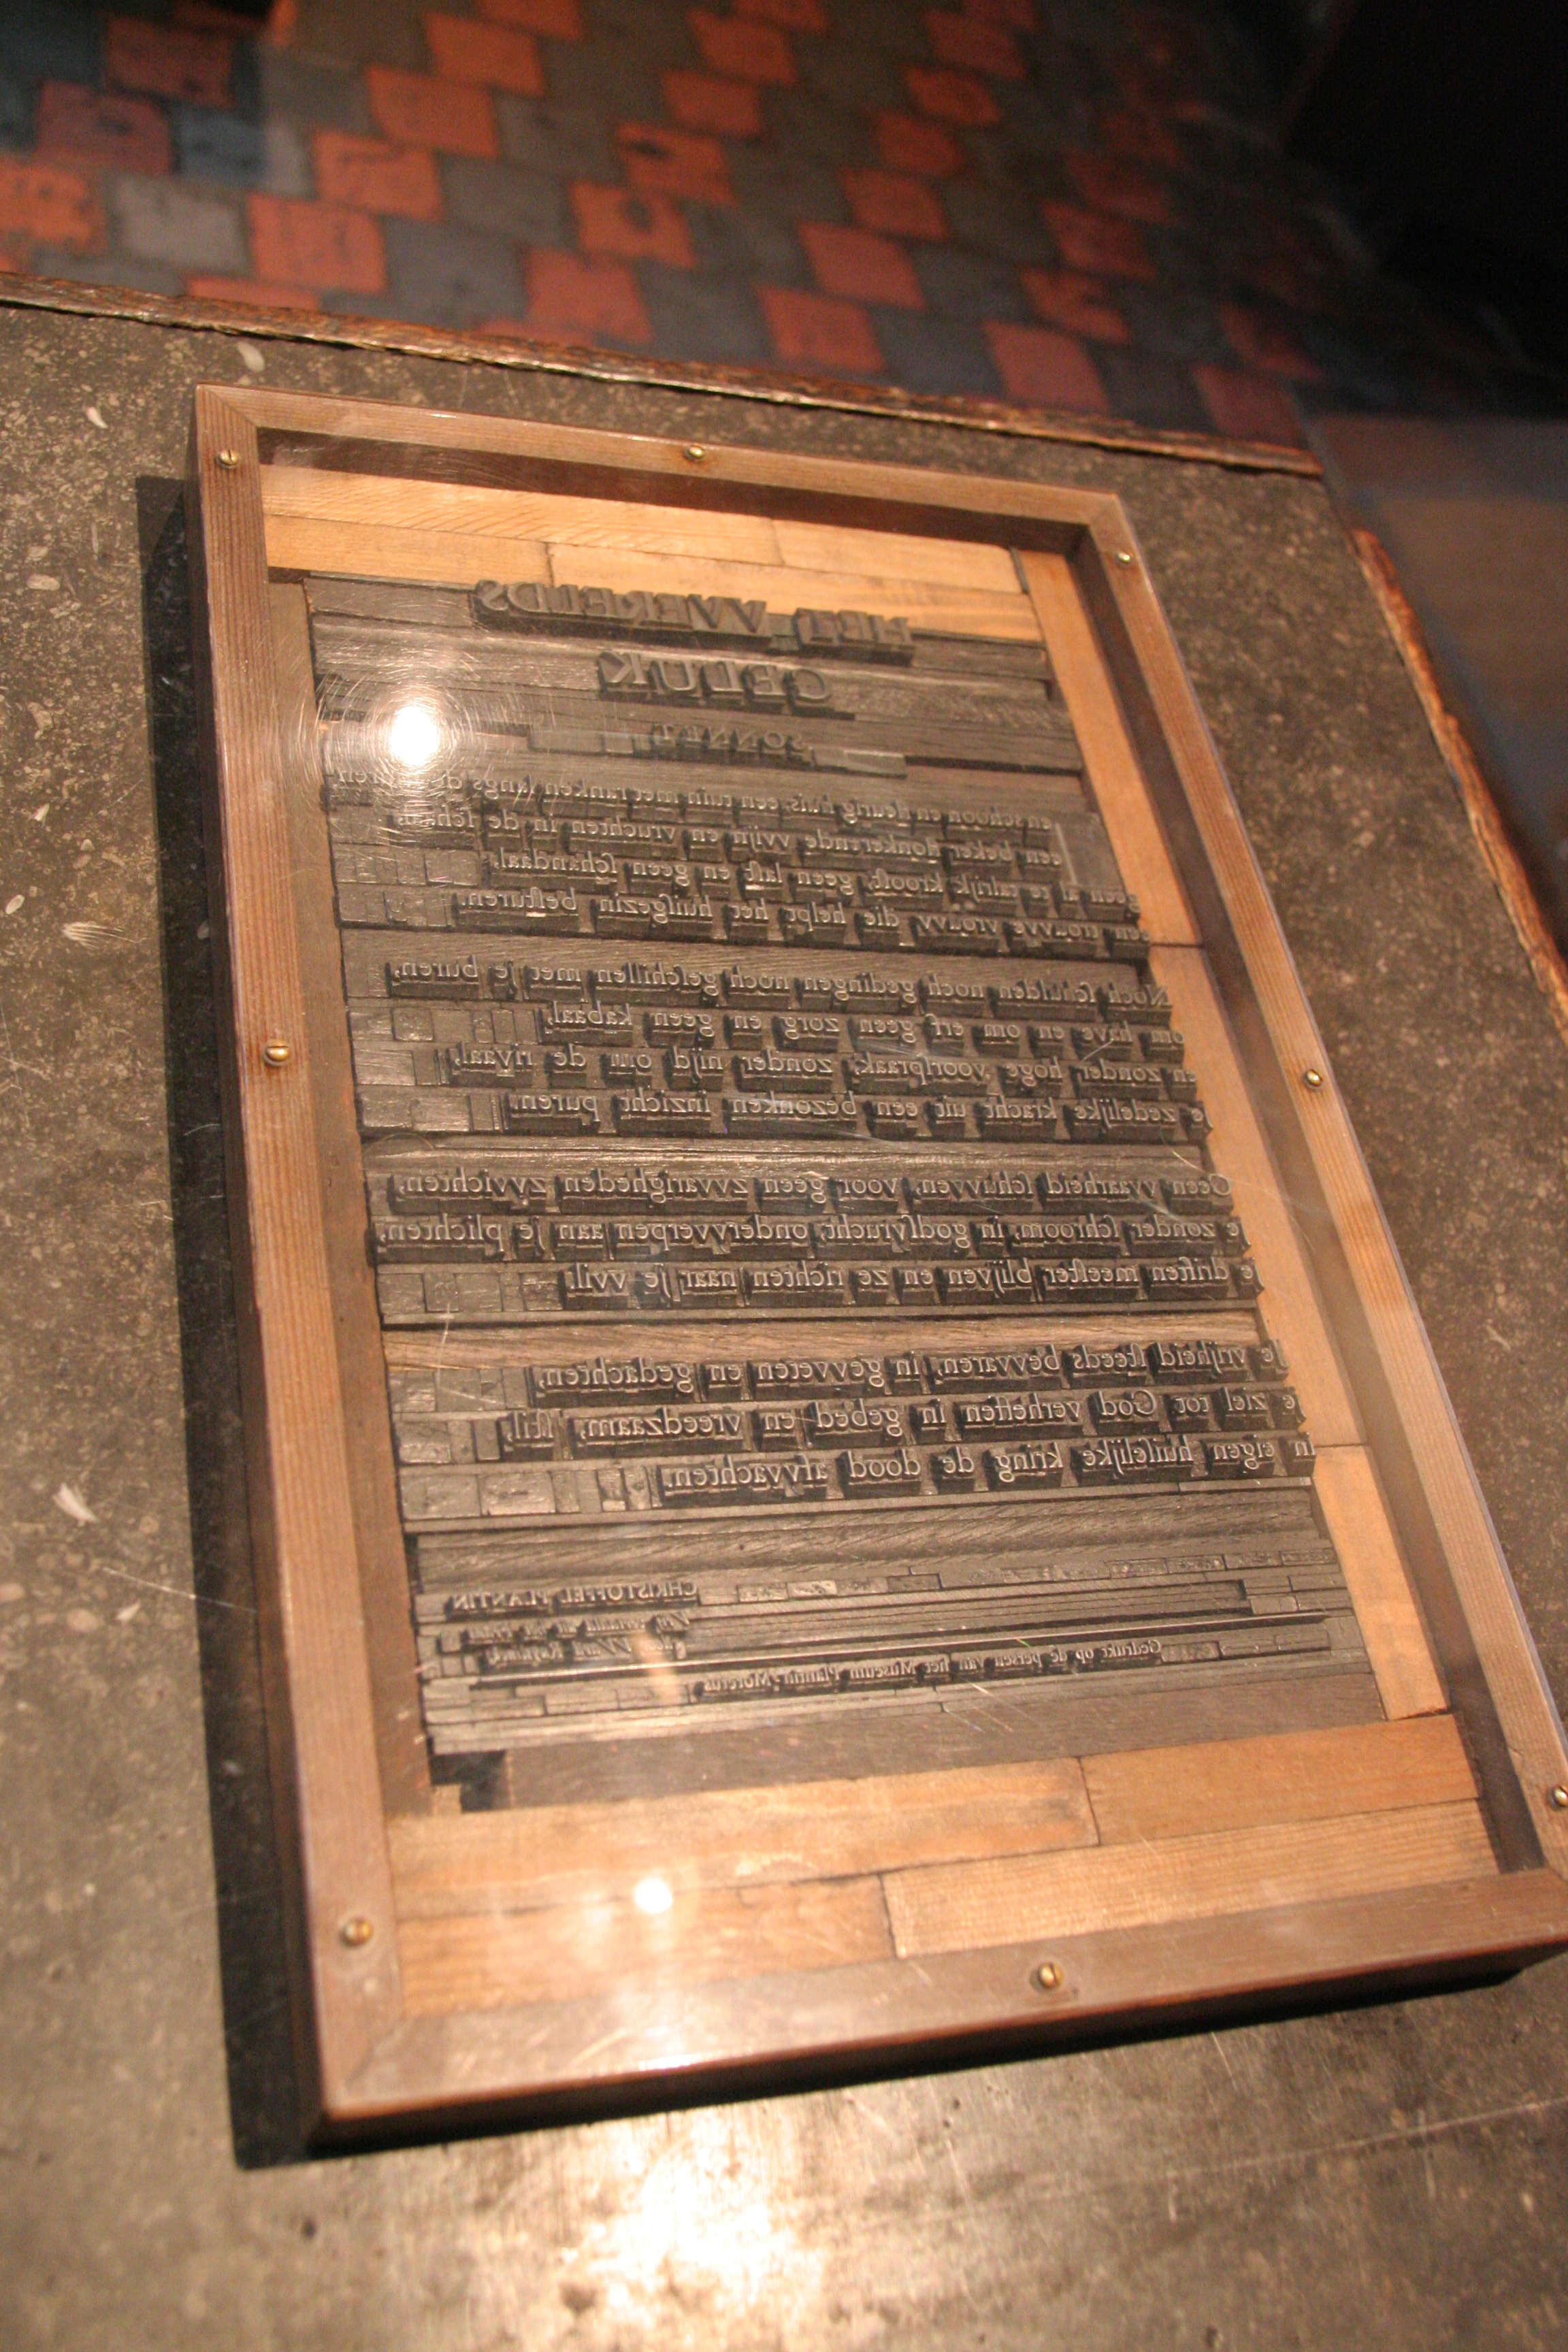 HET WERELDS
GELUK
SONNET
en schoon en fleurig huis, een tuin met ranken langs de muren
een beker flonkerende vvijn en vruchten in de ſchaal,
geen al te talrijk krooſt, geen laſt en geen ſchandaal,
een trouvve vrouvv die helpt het huiſgezin beſturen.
Noch ſchulden noch gedingen noch geſchillen met je buren,
om have en om erf geen zorg en geen kabaal,
en zonder hoge voorſpraak, zonder nijd om de rivaal,
je zedelijke kracht uit een bezonken inzicht puren.
Geen vvaarheid ſchuvven, voor geen zvvarigheden zvvichten,
je zonder ſchroom, in godſvrucht, ondervverpen aan je plichten,
je driften meeſter blijven en ze richten naar je vvil.
Je vrijheid ſteeds bevvaren, in gevveten en gedachten,
je ziel tot God verheffen in gebed en vreedzaam, ſtil,
in eigen huiſelijke kring de dood afvvachten.
CHRISTOFFEL PLANTIN
Vrij vertaald uit het Frans
door
Gedrukt op de persen van het Museum Plantin-Moretus